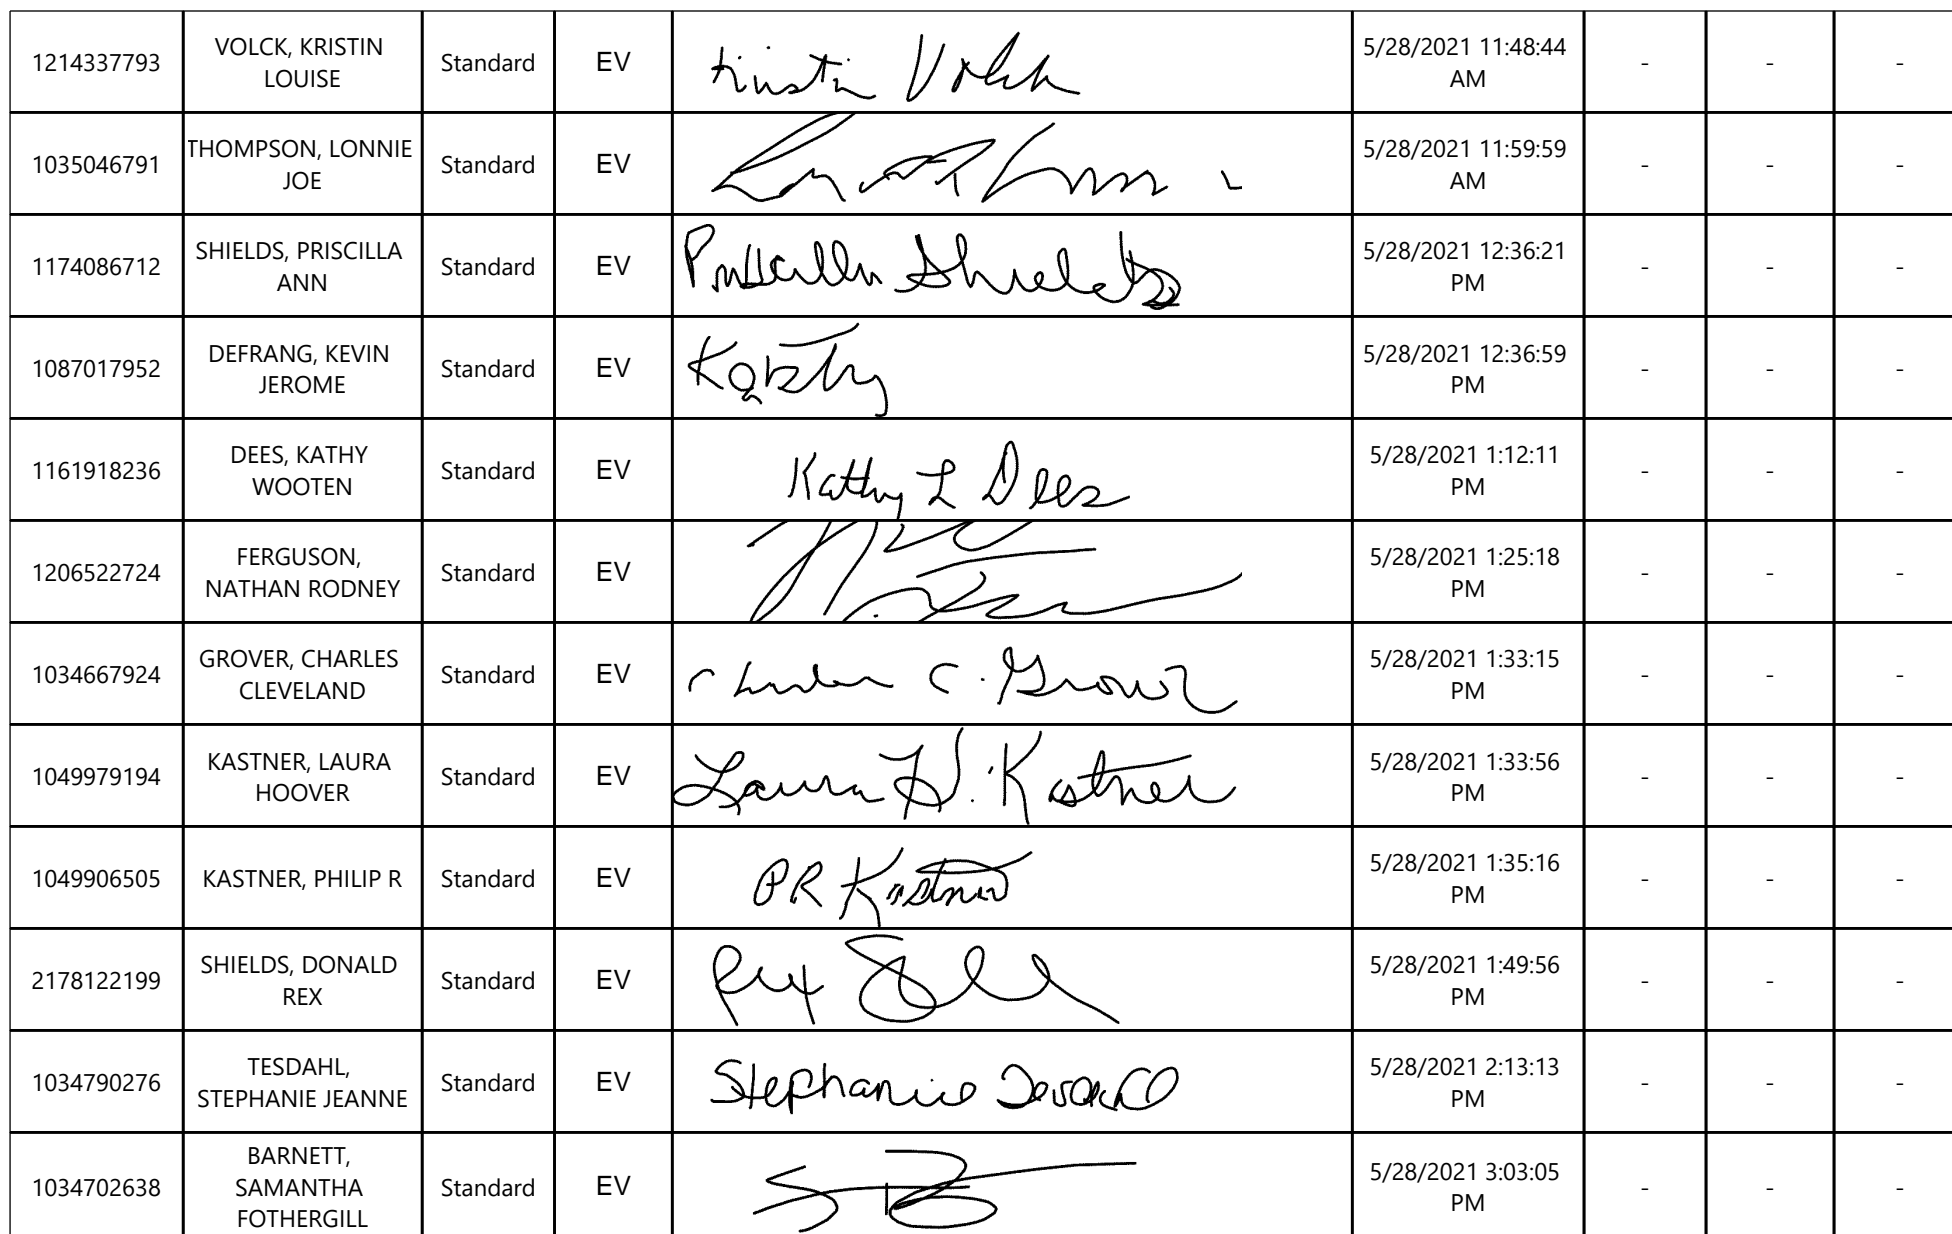 1214337793 VOLCK, KRISTIN LOUISE Standard EV Kristin Volck 5/28/2021 11:48:44 AM - - -
1035046791 THOMPSON, LONNIE JOE Standard EV 5/28/2021 11:59:59 AM - - -
1174086712 SHIELDS, PRISCILLA ANN Standard EV Priscilla Shields 5/28/2021 12:36:21 PM - - -
1087017952 DEFRANG, KEVIN JEROME Standard EV 5/28/2021 12:36:59 PM - - -
1161918236 DEES, KATHY WOOTEN Standard EV Kathy L Dees 5/28/2021 1:12:11 PM - - -
1206522724 FERGUSON, NATHAN RODNEY Standard EV 5/28/2021 1:25:18 PM - - -
1034667924 GROVER, CHARLES CLEVELAND Standard EV Charles C. Grover 5/28/2021 1:33:15 PM - - -
1049979194 KASTNER, LAURA HOOVER Standard EV Laura H. Kastner 5/28/2021 1:33:56 PM - - -
1049906505 KASTNER, PHILIP R Standard EV PR Kastner 5/28/2021 1:35:16 PM - - -
2178122199 SHIELDS, DONALD REX Standard EV Rex 5/28/2021 1:49:56 PM - - -
1034790276 TESDAHL, STEPHANIE JEANNE Standard EV Stephanie Tesdahl 5/28/2021 2:13:13 PM - - -
1034702638 BARNETT, SAMANTHA FOTHERGILL Standard EV 5/28/2021 3:03:05 PM - - -